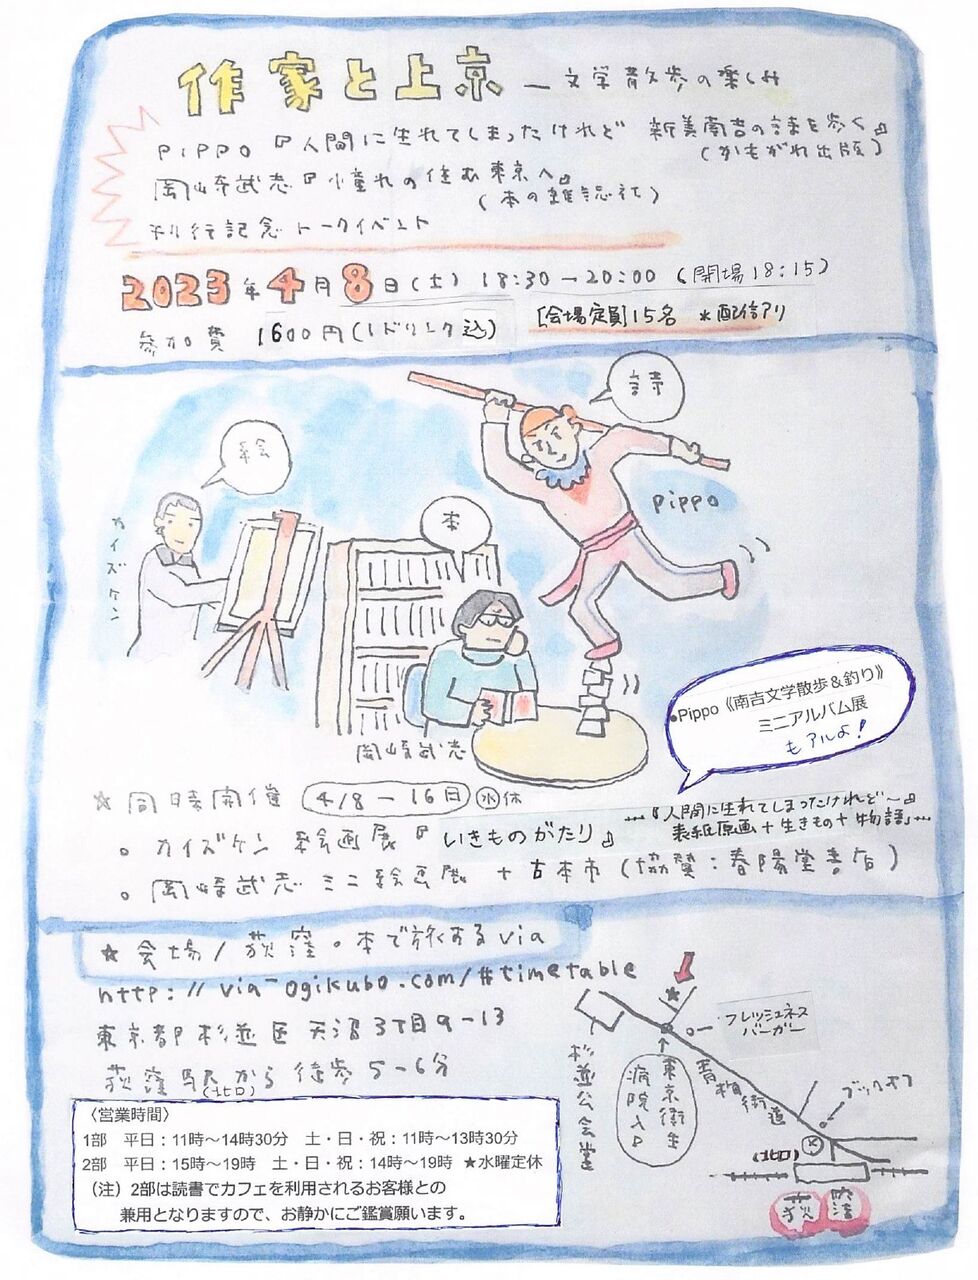 作家と上京 ― 文学散歩の楽しみ
Pippo『人間に生れてしまったけれど 新美南吉の詩を歩く』
(かもがわ出版)
岡崎武志『憧れの住む東京へ』
(本の雑誌社)
刊行記念 トークイベント
2023年4月8日(土) 18:30→20:00 (開場18:15)
参加費 1600円(1ドリンク込)
[会場定員]15名 *配信アリ
詩
絵
本
Pippo
カイズケン
岡崎武志
●Pippo《南吉文学散歩&釣り》
ミニアルバム展
もアルよ!
☆同時開催 4/8-16日 水休
。カイズケン 絵画展『いきものがたり』
…『人間に生れてしまったけれど~』
表紙原画+生きもの+物語」…
。岡崎武志ミニ絵画展 + 古本市 (協賛:春陽堂書店)
★会場/荻窪。本で旅するvia
http://via-ogikubo.com/#timetable
東京都杉並区天沼3丁目9-13
荻窪駅から徒歩5-6分
(北口)
〈営業時間〉
1部 平日:11時~14時30分 土・日・祝:11時~13時30分
2部 平日:15時~19時 土・日・祝:14時~19時 ★水曜定休
(注)2部は読書でカフェを利用されるお客様との
兼用となりますので、お静かにご鑑賞願います。
★
フレッシュネス
バーガー
杉並公会堂
東京衛生
病院入口
青梅街道
ブックオフ
(北口)
荻窪